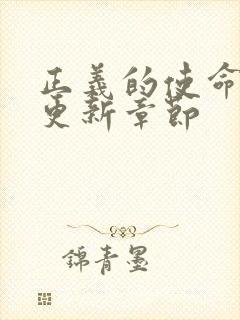 正義的使命
更新章節
錦青墨